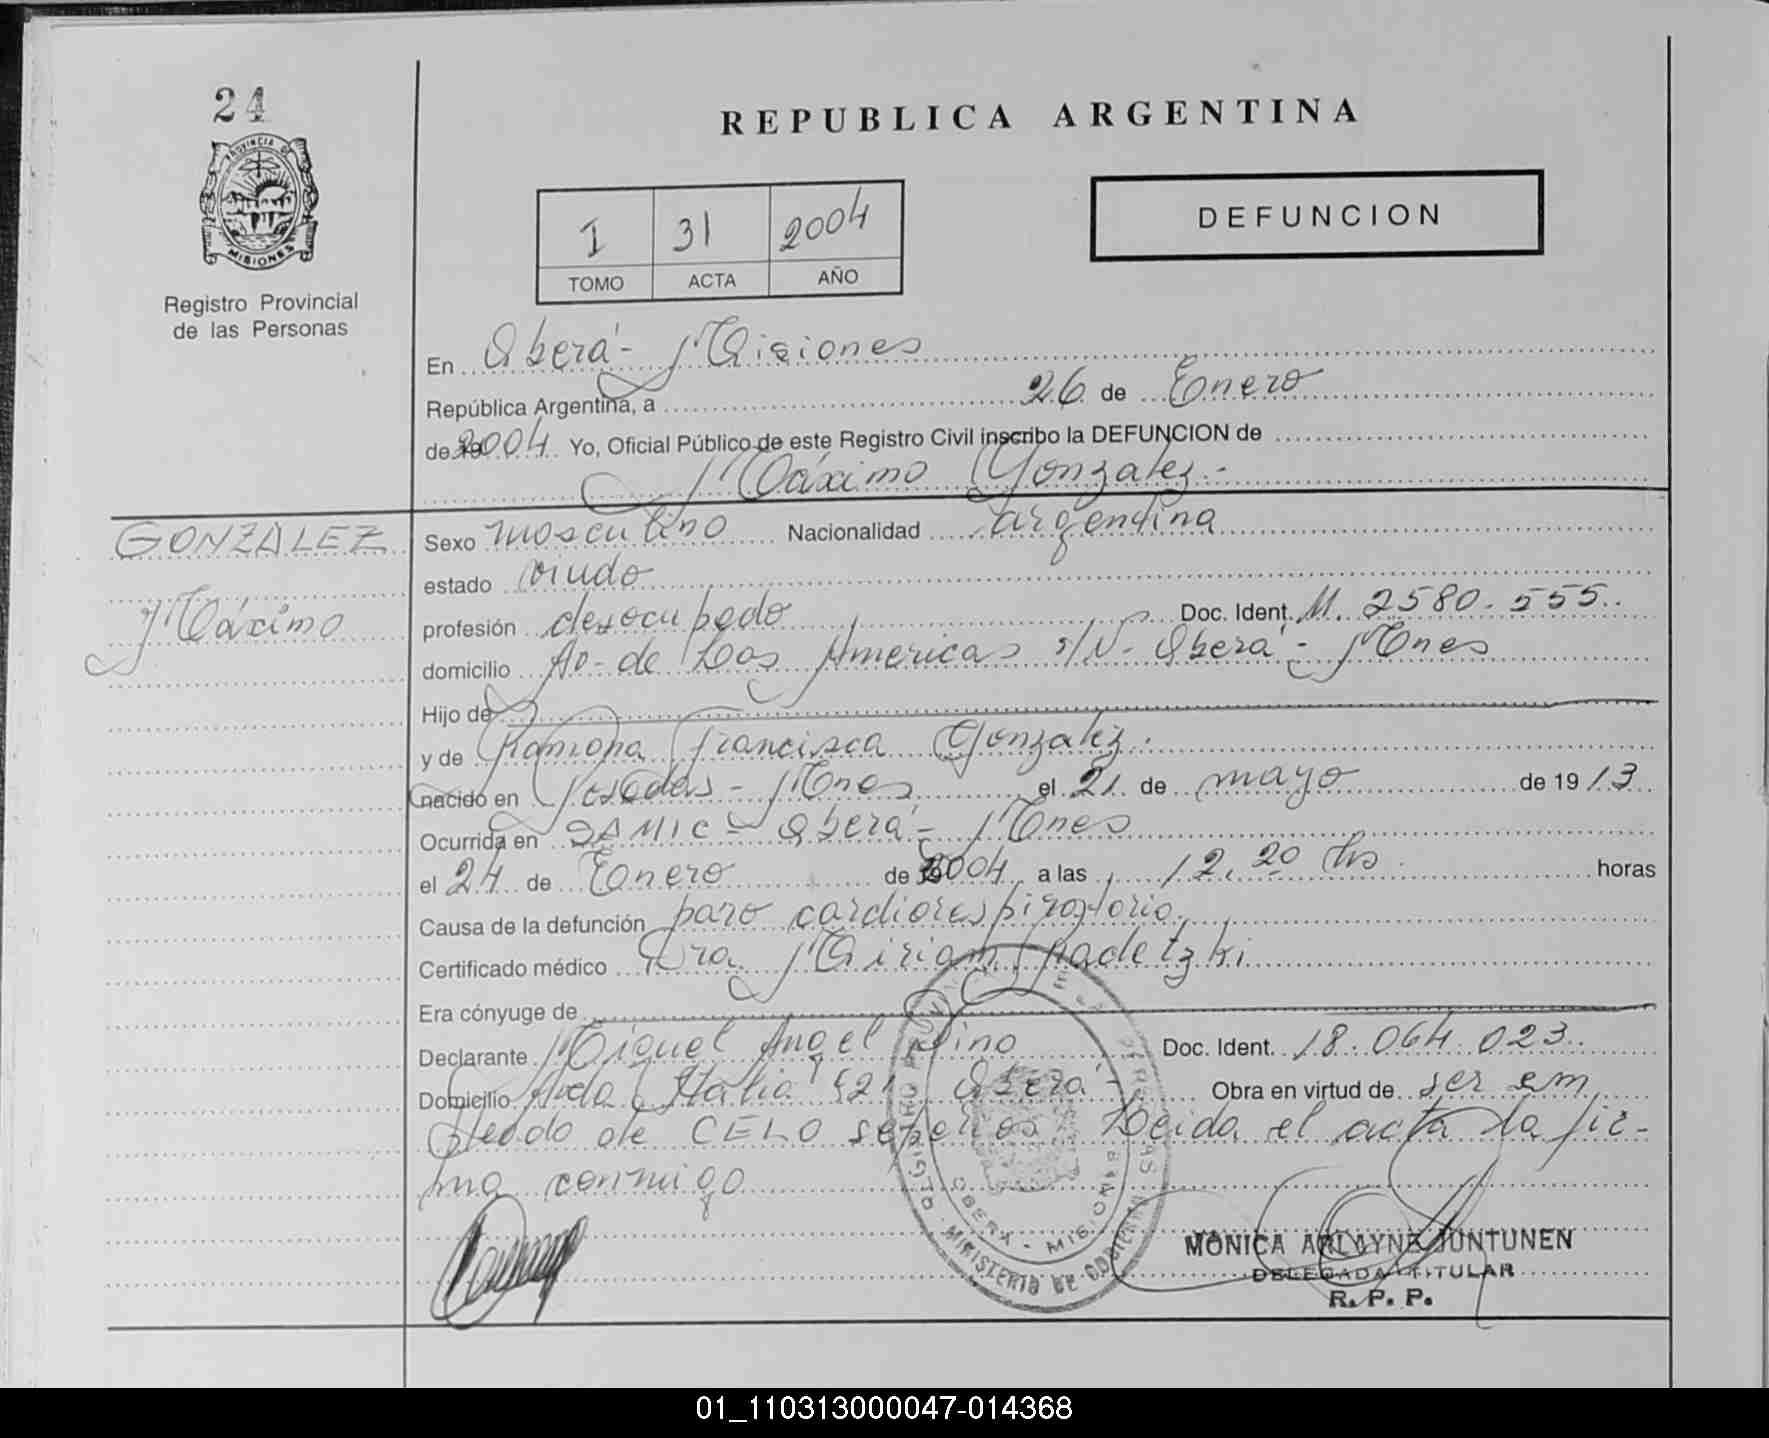 24
PROVINCIA DE
MISIONES
Registro Provincial
de las Personas
REPUBLICA ARGENTINA
I 31 2004
TOMO ACTA AÑO
DEFUNCION
En Oberá - Misiones
República Argentina, a 26 de Enero
de 2004 Yo, Oficial Público de este Registro Civil inscribo la DEFUNCION de
Máximo Gonzalez.-
GONZALEZ
Máximo
Sexo masculino Nacionalidad argentina
estado viudo
profesión desocupado Doc. Ident. M. 2580.555.
domicilio Av. de Las Americas s/N - Oberá - Mnes
Hijo de
y de Ramona Francisca Gonzalez.
nacido en Posadas - Mnes el 21 de mayo de 1913
Ocurrida en SAMIC - Oberá - Mnes
el 24 de Enero de 2004 a las 12,20 hs. horas
Causa de la defunción paro cardiorespiratorio.
Certificado médico Dra. Miriam
Era cónyuge de
Declarante Miguel Angel Pino Doc. Ident. 18.064.023.
Domicilio Avda Italia 521 Oberá - Obra en virtud de ser em
pleado de CELO sepelios. Leida el acta la fir-
ma conmigo
REGISTRO PROVINCIAL DE LAS PERSONAS
OBERA - MISIONES
MINISTERIO DE GOBIERNO
MONICA ARLAYNE JUNTUNEN
DELEGADA TITULAR
R. P. P.
01_110313000047-014368